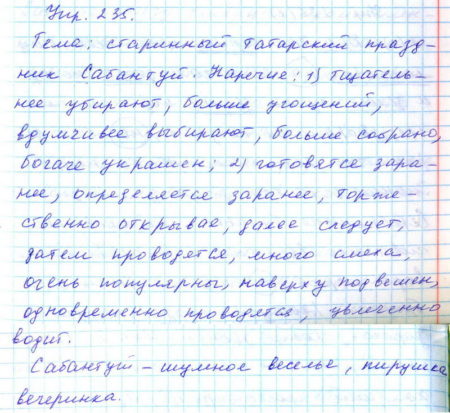 Упр. 235.
Тема: старинный татарский празд-
ник Сабантуй. Наречие: 1) тщатель-
нее убирают, больше угощений,
вдумчивее выбирают, больше собрано,
богаче украшен; 2) готовятсе зара-
нее, определяется заранее, торже-
ственно открывае, далее следует,
датем проводятся, много смеха,
очень популярны, наверху подвешен,
одновременно проводятся, увлеченно
водит.
Сабантуй – шумное веселье, пирушка
вечеринка.